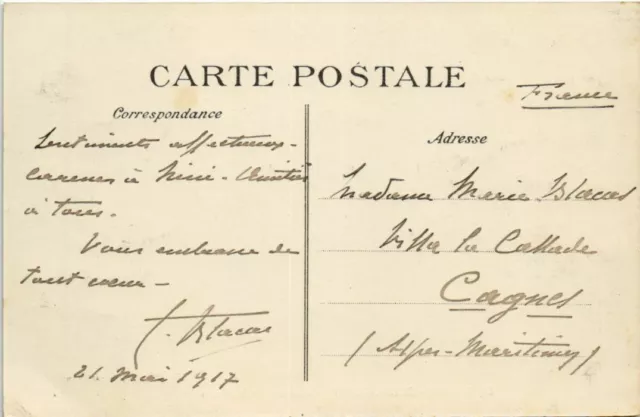 CARTE POSTALE
France
Correspondance
Sentiments affectueux -
Caresses à Mimi - Amitiés
à tous -
Vous embrasse de
tout cœur -
J. Blacas
21. Mai 1917
Adresse
Madame Marie Blacas
Villa la Callade
Cagnes
(Alpes-Maritimes)